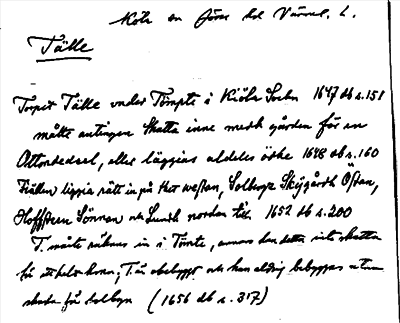 Köla sn Jösse hd Värml. L.
Tälle
Torpet Tälle under Tömpte i Kiöla Sochn 1647 db s. 151
måtte antingen skatta inne medh gården för en
Attondedeel, eller läggias aldeles öde 1648 db s. 160
Fiällen liggia rätt in på Herr westan, Solberge Skijgårdh Östan,
Hoffstern Sönnan och Sundh nordan till. 1652 db s. 200
T. måste räknas in i Tömte, annars den detta intt skatta
för ; T. är obebyggt och kan aldrig bebyggas utan
skada för Solbyn (1656 db s. 317)